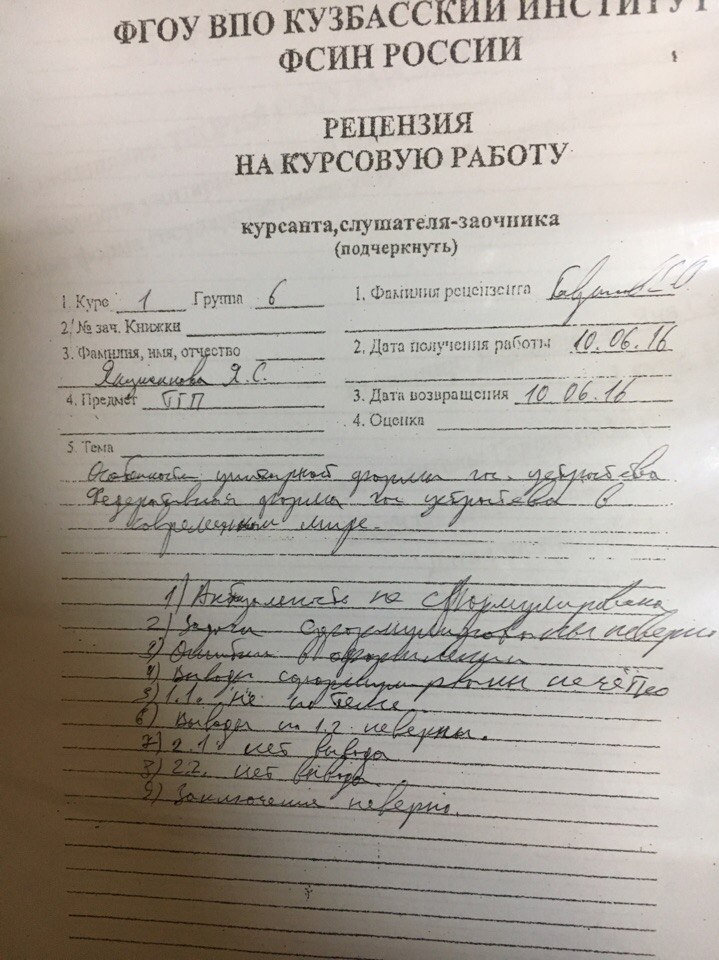 ФГОУ ВПО КУЗБАССКИЙ ИНСТИТУТ
ФСИН РОССИИ
РЕЦЕНЗИЯ
НА КУРСОВУЮ РАБОТУ
курсанта,слушателя-заочника
(подчеркнуть)
1. Курс 1 Группа 6
2. № зач. Книжки
3. Фамилия, имя, отчество
Я.С.
4. Предмет ТГП
5. Тема
1. Фамилия рецензента
2. Дата получения работы 10.06.16
3. Дата возвращения 10 06.16
4. Оценка
Особенности унитарной формы гос. устройства
Федеративная форма гос устройства в
современном мире.
1) Актуальность не сформулирована
2) Задачи сформулированы неверно
3) Ошибки в оформлении
4) Выводы сформулированы нечётко
5) 1.1. не по теме.
6) Выводы по 1.2 неверны.
7) 2.1. нет вывода
8) 2.2. нет вывода
9) Заключение неверно.